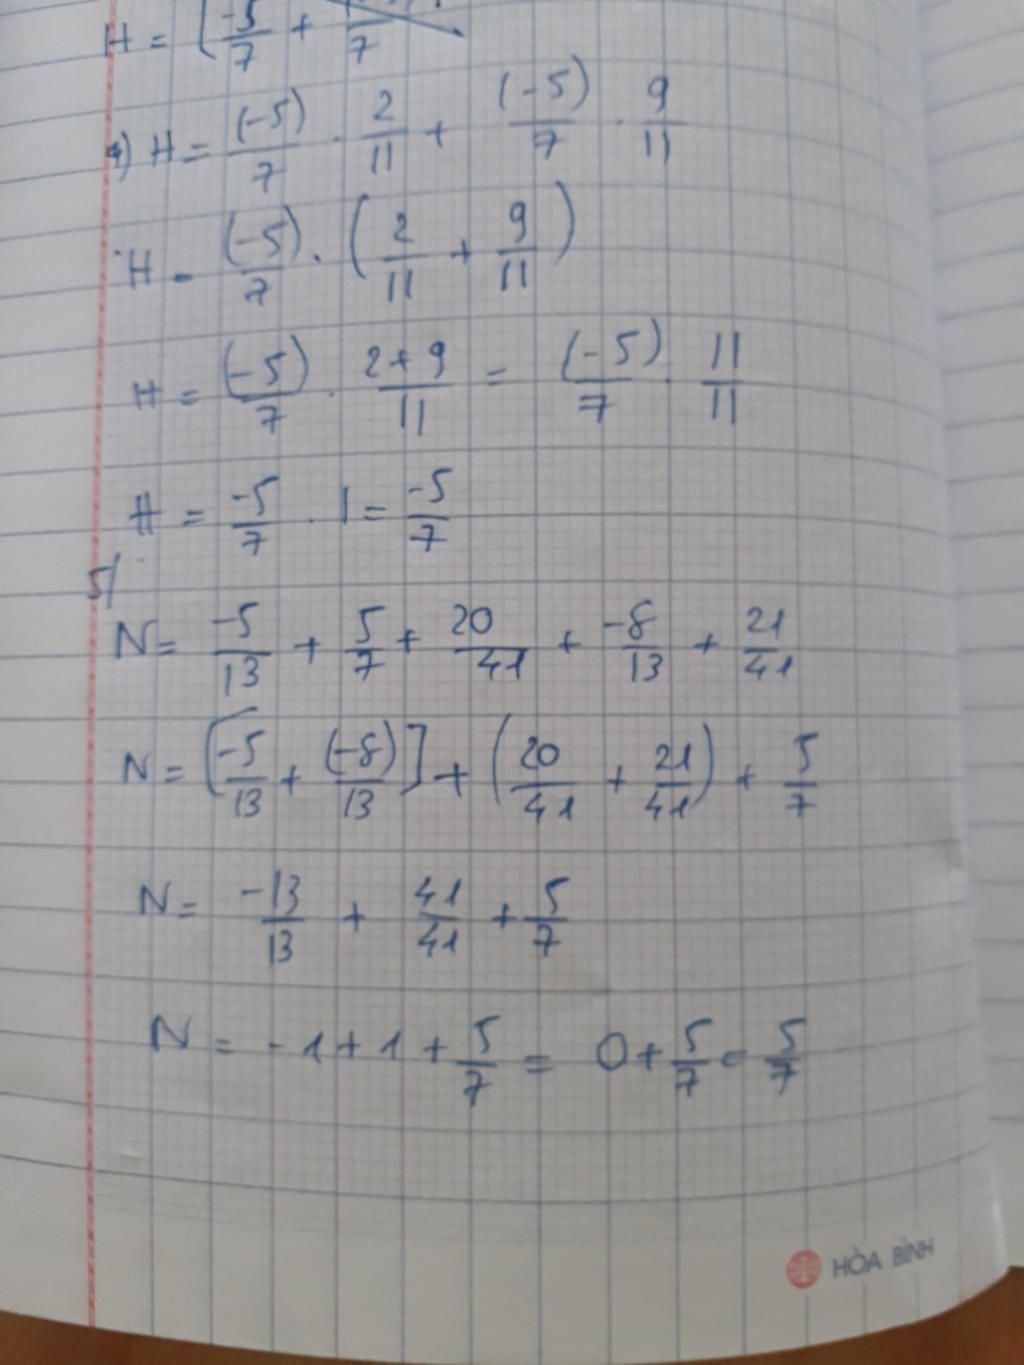 H = [-5/7 + /7
4) H = (-5)/7 . 2/11 + (-5)/7 . 9/11
H = (-5)/7 . (2/11 + 9/11)
H = (-5)/7 . 2+9/11 = (-5)/7 . 11/11
H = -5/7 . 1 = -5/7
5/
N = -5/13 + 5/7 + 20/41 + -8/13 + 21/41
N = [-5/13 + (-8)/13] + (20/41 + 21/41) + 5/7
N = -13/13 + 41/41 + 5/7
N = -1 + 1 + 5/7 = 0 + 5/7 = 5/7
HÒA BÌNH